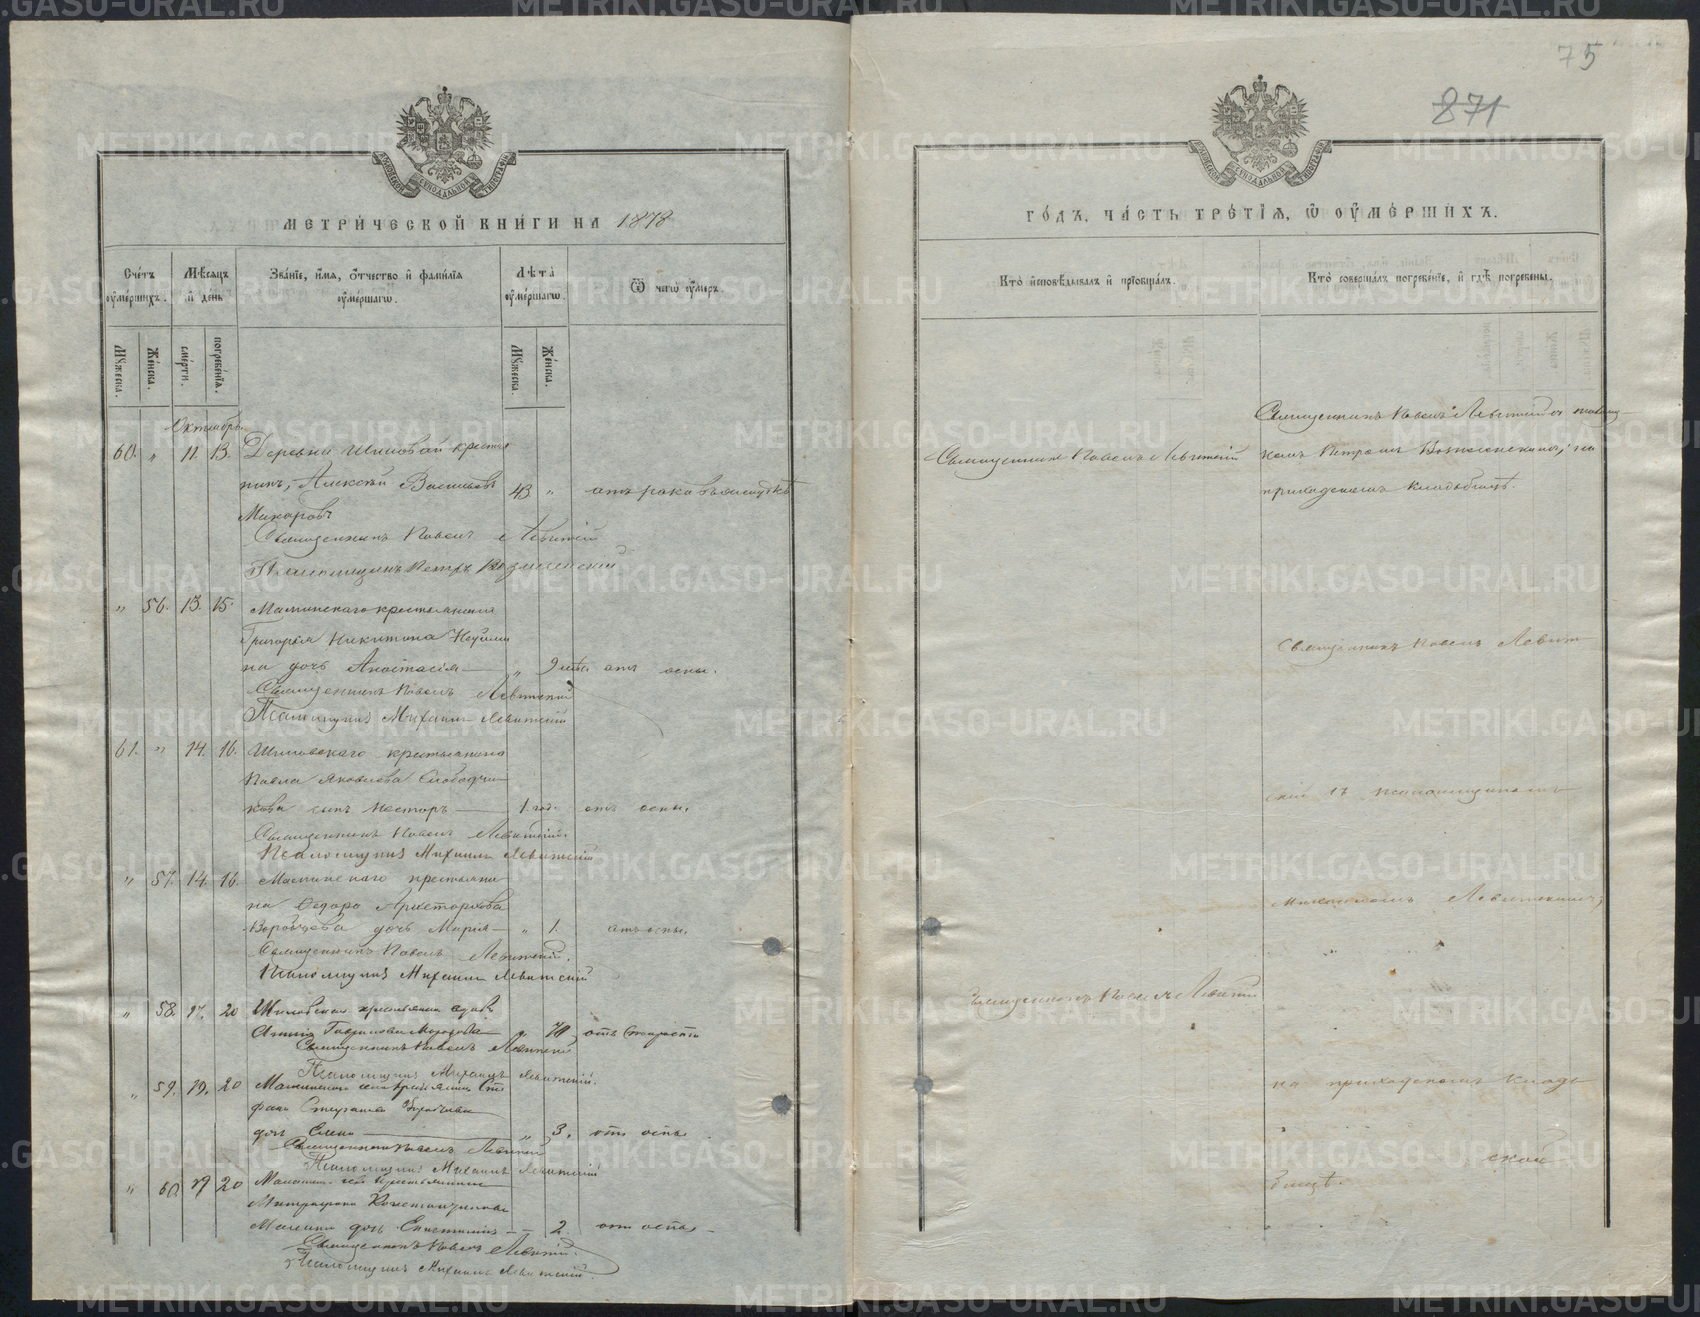 75
871
МЕТРИЧЕСКОЙ КНИГИ НА 1878
Счетъ умершихъ.
Мѣсяцъ и день
Званіе, имя, отчество и фамилія умершаго.
Лѣта умершаго.
Ѿ чего умеръ.
Мужеска.
Женска.
смерти.
погребенія.
Мужеска
Женска.
Октябрь
60. " 11 13. Деревни Шиловой крестья
нинъ, Алексѣй Васильевъ 43 " отъ рака въ желудкѣ
Макаровъ
Священникъ Павелъ Левитскій
Псаломщикъ Петръ Вознесенскій
" 56. 13. 15. Маминскаго крестьянина
Григорья Никитина
на дочь Анастасія " 9 мѣс. отъ оспы.
Священникъ Павелъ Левитскій
Псаломщикъ Михаилъ Левитскій
61. " 14. 16. Шиловскаго крестьянина
Павла Яковлева Слободчи
кова сынъ Несторъ 1 год. отъ оспы.
Священникъ Павелъ Левитскій.
Псаломщикъ Михаилъ Левитскій
" 57. 14. 16. Маминскаго крестьяни
на Ѳедора Аристархова
Воробьева дочь Марія " 1. отъ оспы.
Священникъ Павелъ Левитскій.
Псаломщикъ Михаилъ Левитскій
" 58. 17. 20 Шиловская крестьянская вдова
Анна Гаврилова 70 отъ старости
Священникъ Павелъ Левитскій
Псаломщикъ Михаилъ Левитскій.
" 59. 19. 20 Маминскаго
Степанова
дочь Елена " 3. отъ оспы
Священникъ Павелъ Левитскій
Псаломщикъ Михаилъ Левитскій
" 60. 19 20 крестьянина
Митрофана Константинова
дочь 2 отъ оспы
Священникъ Павелъ Левитскій.
Псаломщикъ Михаилъ Левитскій.
ГОДЪ, ЧАСТЬ ТРЕТІЯ, Ѿ УМЕРШИХЪ.
Кто исповѣдывалъ и пріобщалъ.
Кто совершалъ погребеніе, и гдѣ погребены.
Священникъ Павелъ Левитскій
Священникъ Павелъ Левитскій съ псаломщи-
комъ Петромъ Вознесенскимъ, на
приходскомъ кладбищѣ.
Священникъ Павелъ Левит
скій съ псаломщикомъ
Михаиломъ Левитскимъ,
Священникъ Павелъ Левитскій
на приходскомъ кладь
бищѣ.
METRIKI.GASO-URAL.RU